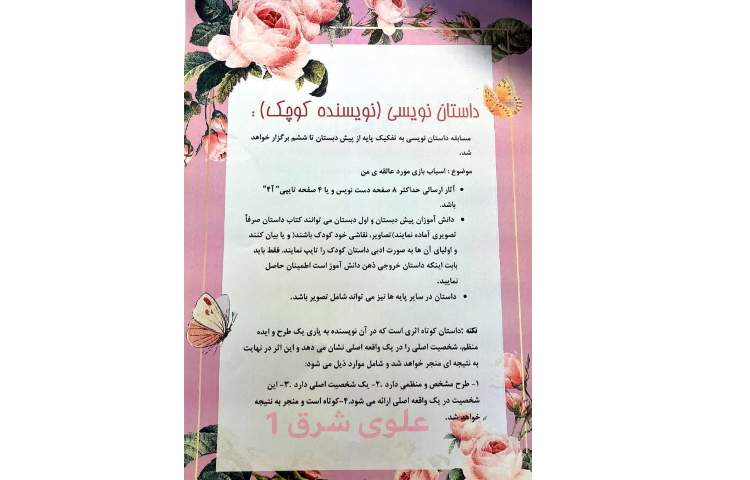 داستان نویسی (نویسنده کوچک) :
مسابقه داستان نویسی به تفکیک پایه از پیش دبستان تا ششم برگزار خواهد
شد.
موضوع : اسباب بازی مورد عالقه ی من
• آثار ارسالی حداکثر ۸ صفحه دست نویس و یا ۴ صفحه تایپی" آ۴"
باشد.
• دانش آموزان پیش دبستان و اول دبستان می توانند کتاب داستان صرفاً
تصویری آماده نمایند)تصاویر، نقاشی خود کودک باشند( و یا بیان کنند
و اولیای آن ها به صورت ادبی داستان کودک را تایپ نمایند. فقط باید
بابت اینکه داستان خروجی ذهن دانش آموز است اطمینان حاصل
نمایید.
• داستان در سایر پایه ها نیز می تواند شامل تصویر باشد.
نکته :داستان کوتاه اثری است که در آن نویسنده به یاری یک طرح و ایده
منظم، شخصیت اصلی را در یک واقعه اصلی نشان می دهد و این اثر در نهایت
به نتیجه ای منجر خواهد شد و شامل موارد ذیل می شود:
۱- طرح مشخص و منظمی دارد .۲- یک شخصیت اصلی دارد .۳- این
شخصیت در یک واقعه اصلی ارائه می شود.۴-کوتاه است و منجر به نتیجه
خواهد شد.
علوی شرق 1